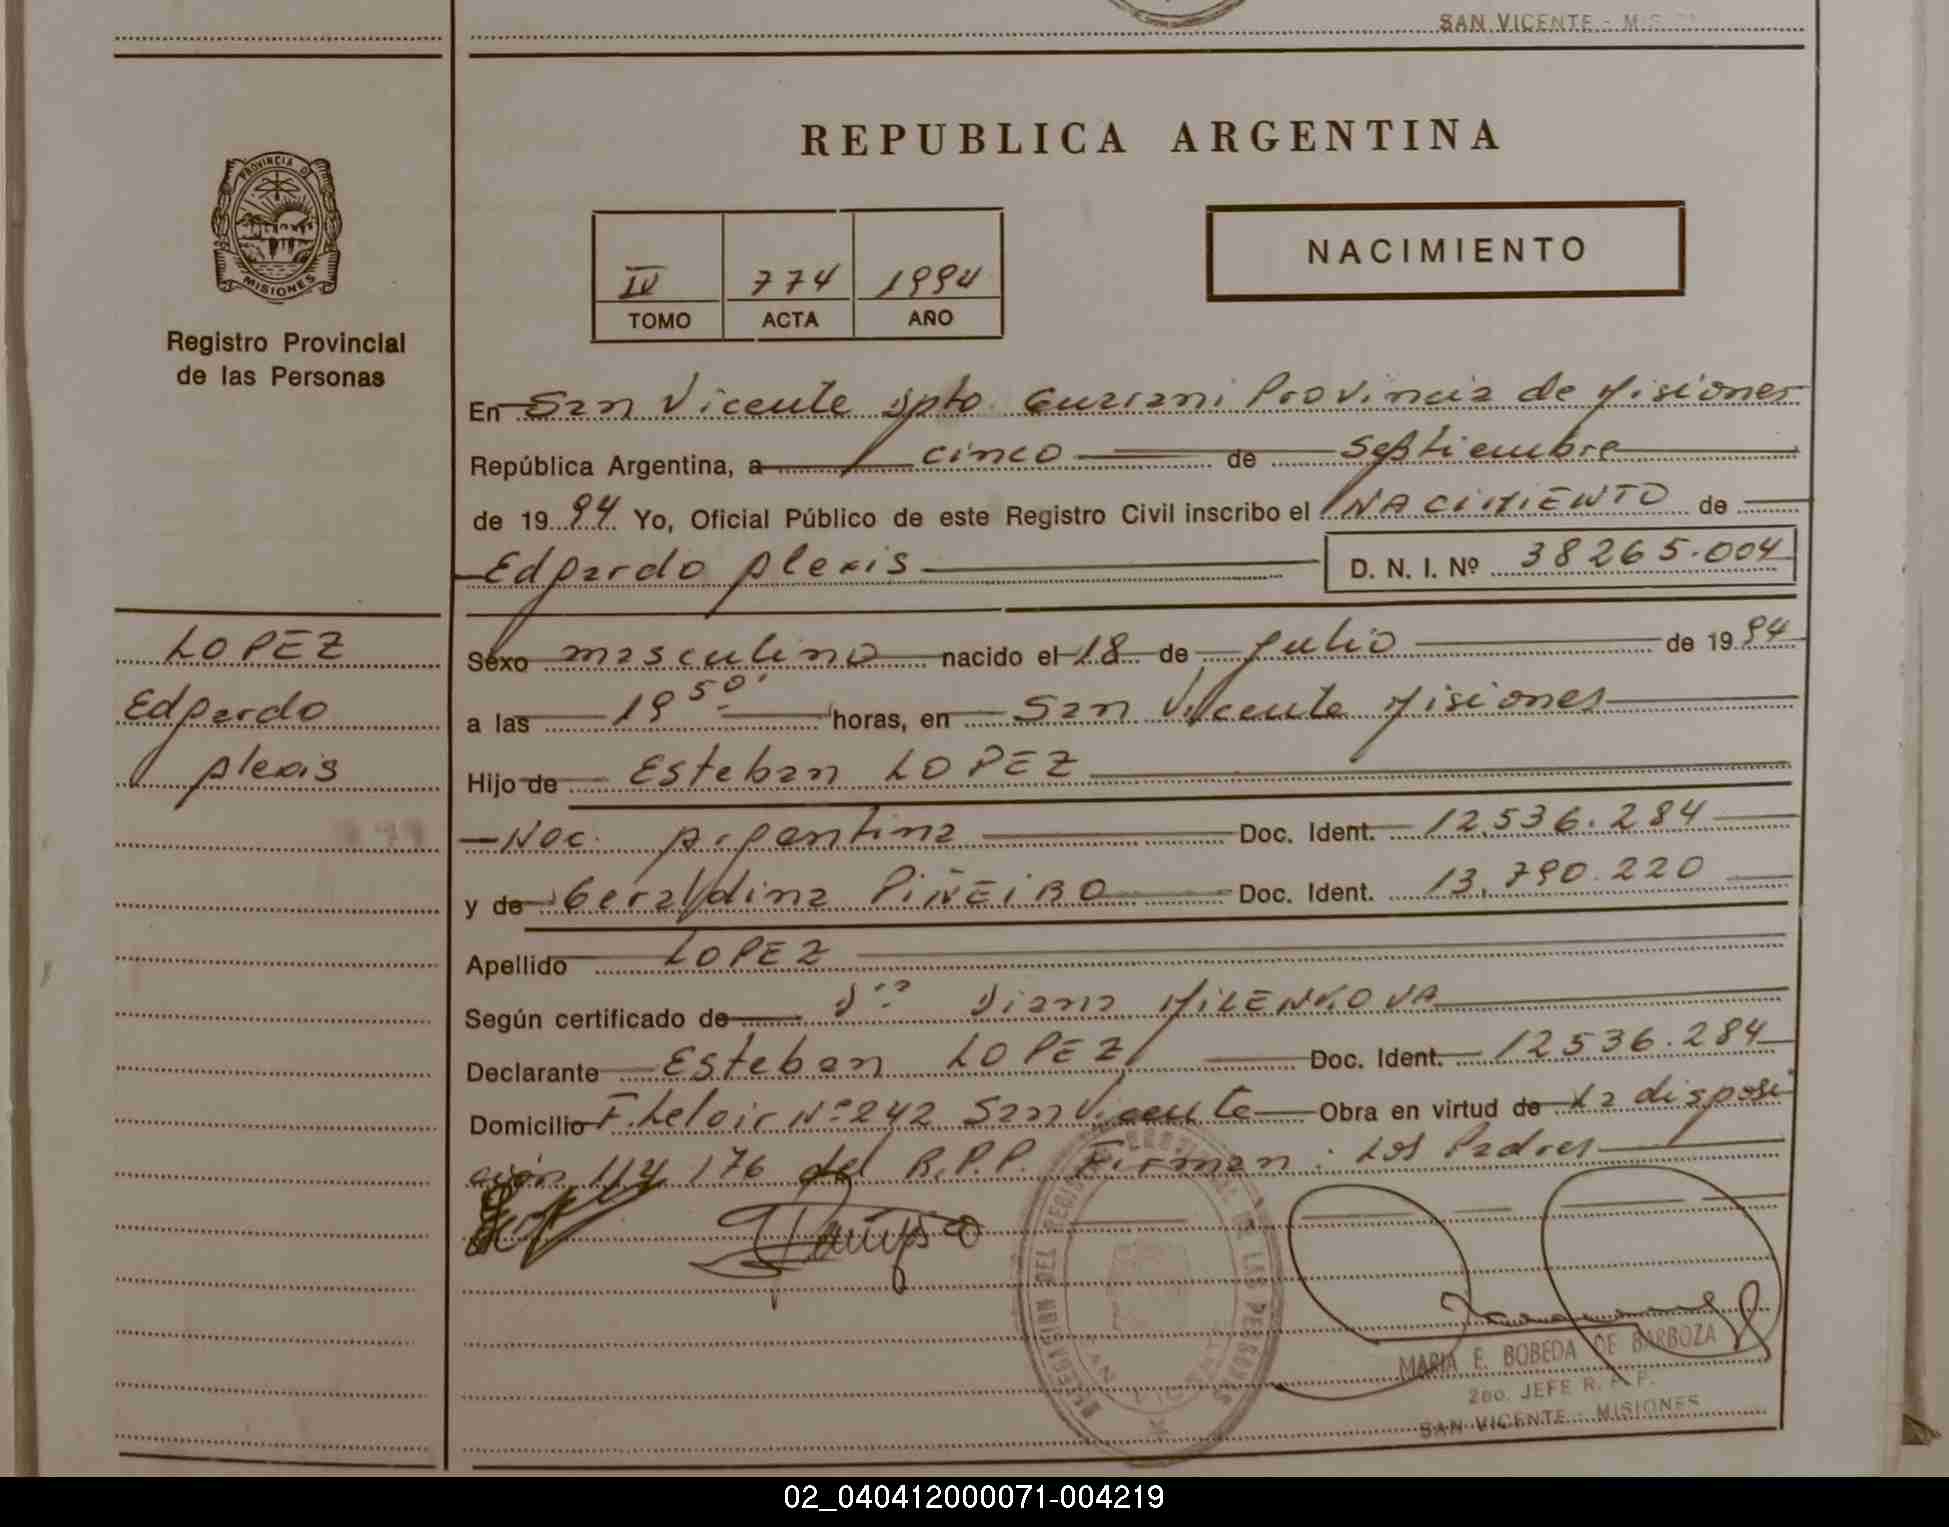 SAN VICENTE - MIS
PROVINCIA D
MISIONES
Registro Provincial
de las Personas
REPUBLICA ARGENTINA
IV 774 1994
TOMO ACTA AÑO
NACIMIENTO
En San Vicente Dpto. Guarani Provincia de Misiones
República Argentina, a cinco de Septiembre
de 1994 Yo, Oficial Público de este Registro Civil inscribo el NACIMIENTO de
Edgardo Alexis D. N. I. Nº 38265.004
LOPEZ
Edgardo
Alexis
Sexo masculino nacido el 18 de Julio de 1994
a las 19 50. horas, en San Vicente Misiones
Hijo de Esteban LOPEZ
Nac. Argentina Doc. Ident. 12.536.284
y de Geraldina PIÑEIRO Doc. Ident. 13.790.220
Apellido LOPEZ
Según certificado de Dra Diana MILENKOVA
Declarante Esteban LOPEZ Doc. Ident. 12536.284
Domicilio F. Leloir Nº 242 San Vicente Obra en virtud de la disposi
ción 114/76 del R.P.P. Firman: Los Padres
DELEGACION DEL REGISTRO PROVINCIAL DE LAS PERSONAS
MARIA E. BOBEDA DE BARBOZA
2do. JEFE R. P. P.
SAN VICENTE - MISIONES
02_040412000071-004219